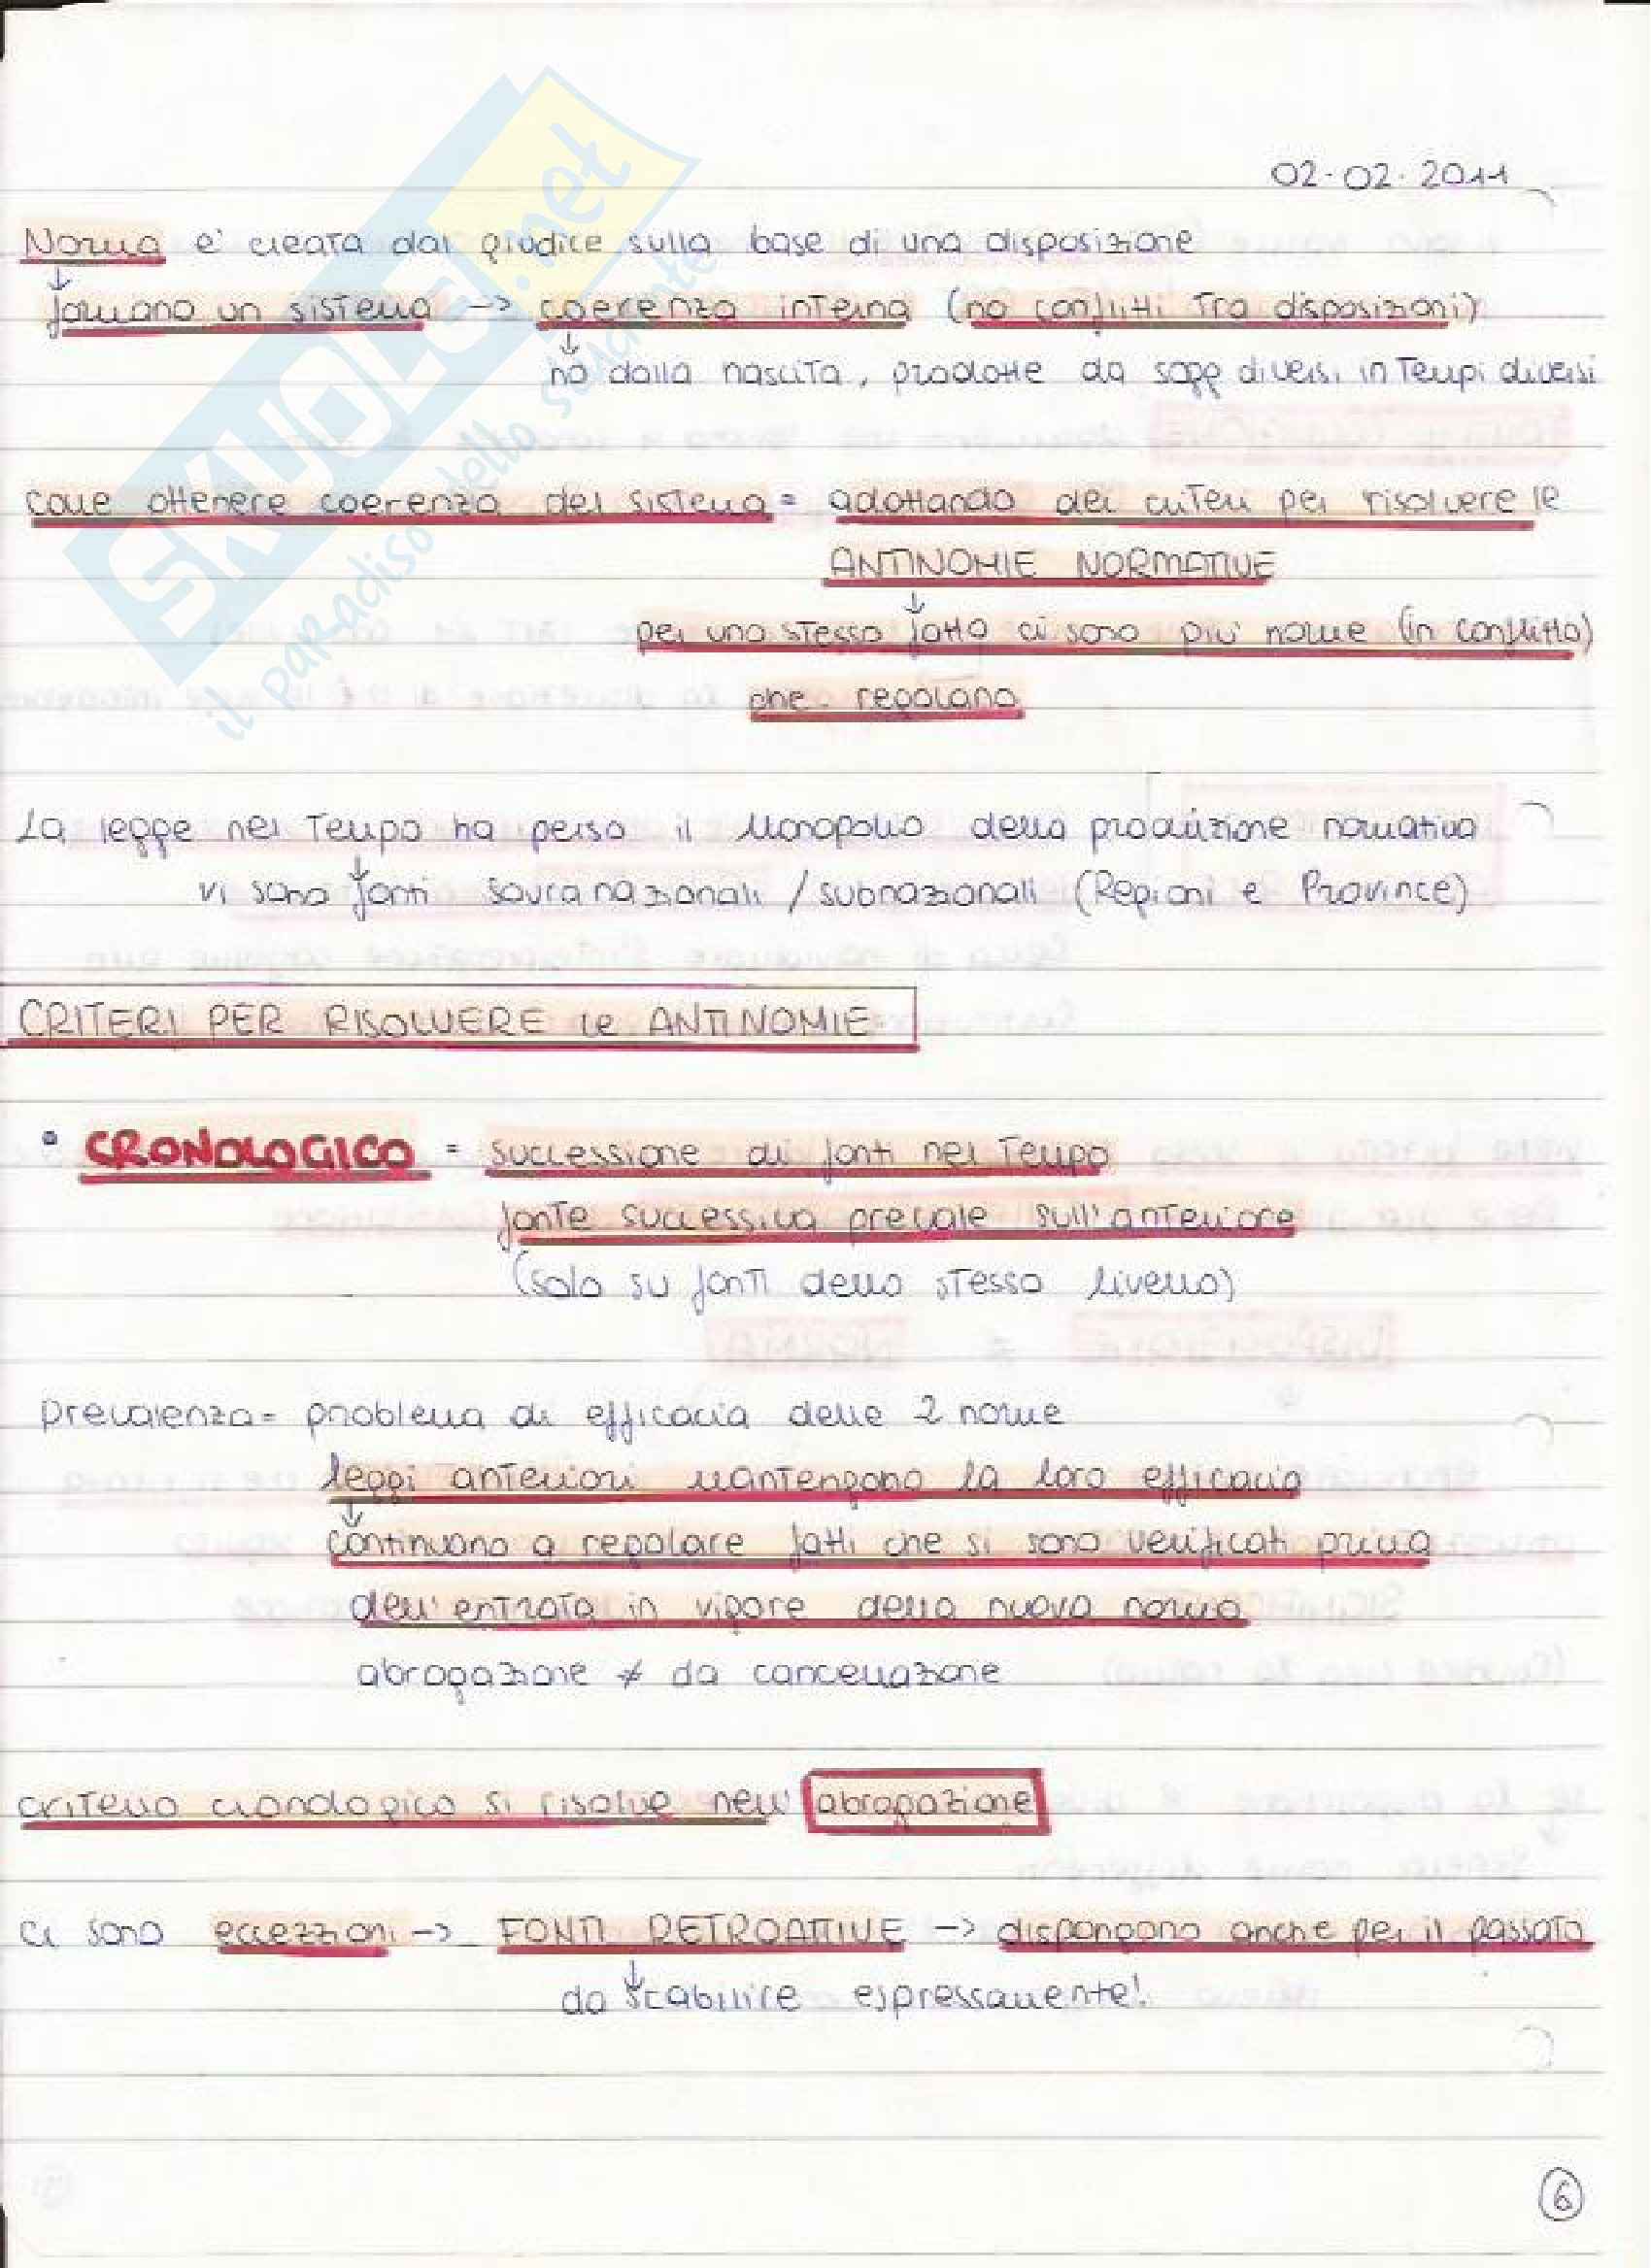 02.02.2011
Norma e' creata dal giudice sulla base di una disposizione
↓
formano un sistema -> coerenza interna (no conflitti tra disposizioni)
↓
no dalla nascita, prodotte da sogg diversi in tempi diversi
come ottenere coerenza del sistema = adottando dei criteri per risolvere le
ANTINOMIE NORMATIVE
↓
per uno stesso fatto ci sono piu' norme (in conflitto)
che regolano
La legge nel tempo ha perso il monopolio della produzione normativa
↓
vi sono fonti sovranazionali / subnazionali (Regioni e Province)
CRITERI PER RISOLVERE le ANTINOMIE
• CRONOLOGICO = successione di fonti nel tempo
fonte successiva prevale sull'anteriore
(solo su fonti dello stesso livello)
prevalenza = problema di efficacia delle 2 norme
leggi anteriori mantengono la loro efficacia
↓
continuano a regolare fatti che si sono verificati prima
dell'entrata in vigore della nuova norma
abrogazione ≠ da cancellazione
criterio cronologico si risolve nell' abrogazione
ci sono eccezzioni -> FONTI RETROATTIVE -> dispongono anche per il passato
↓
da stabilire espressamente!
6
SKUOLA.net
il paradiso dello studente